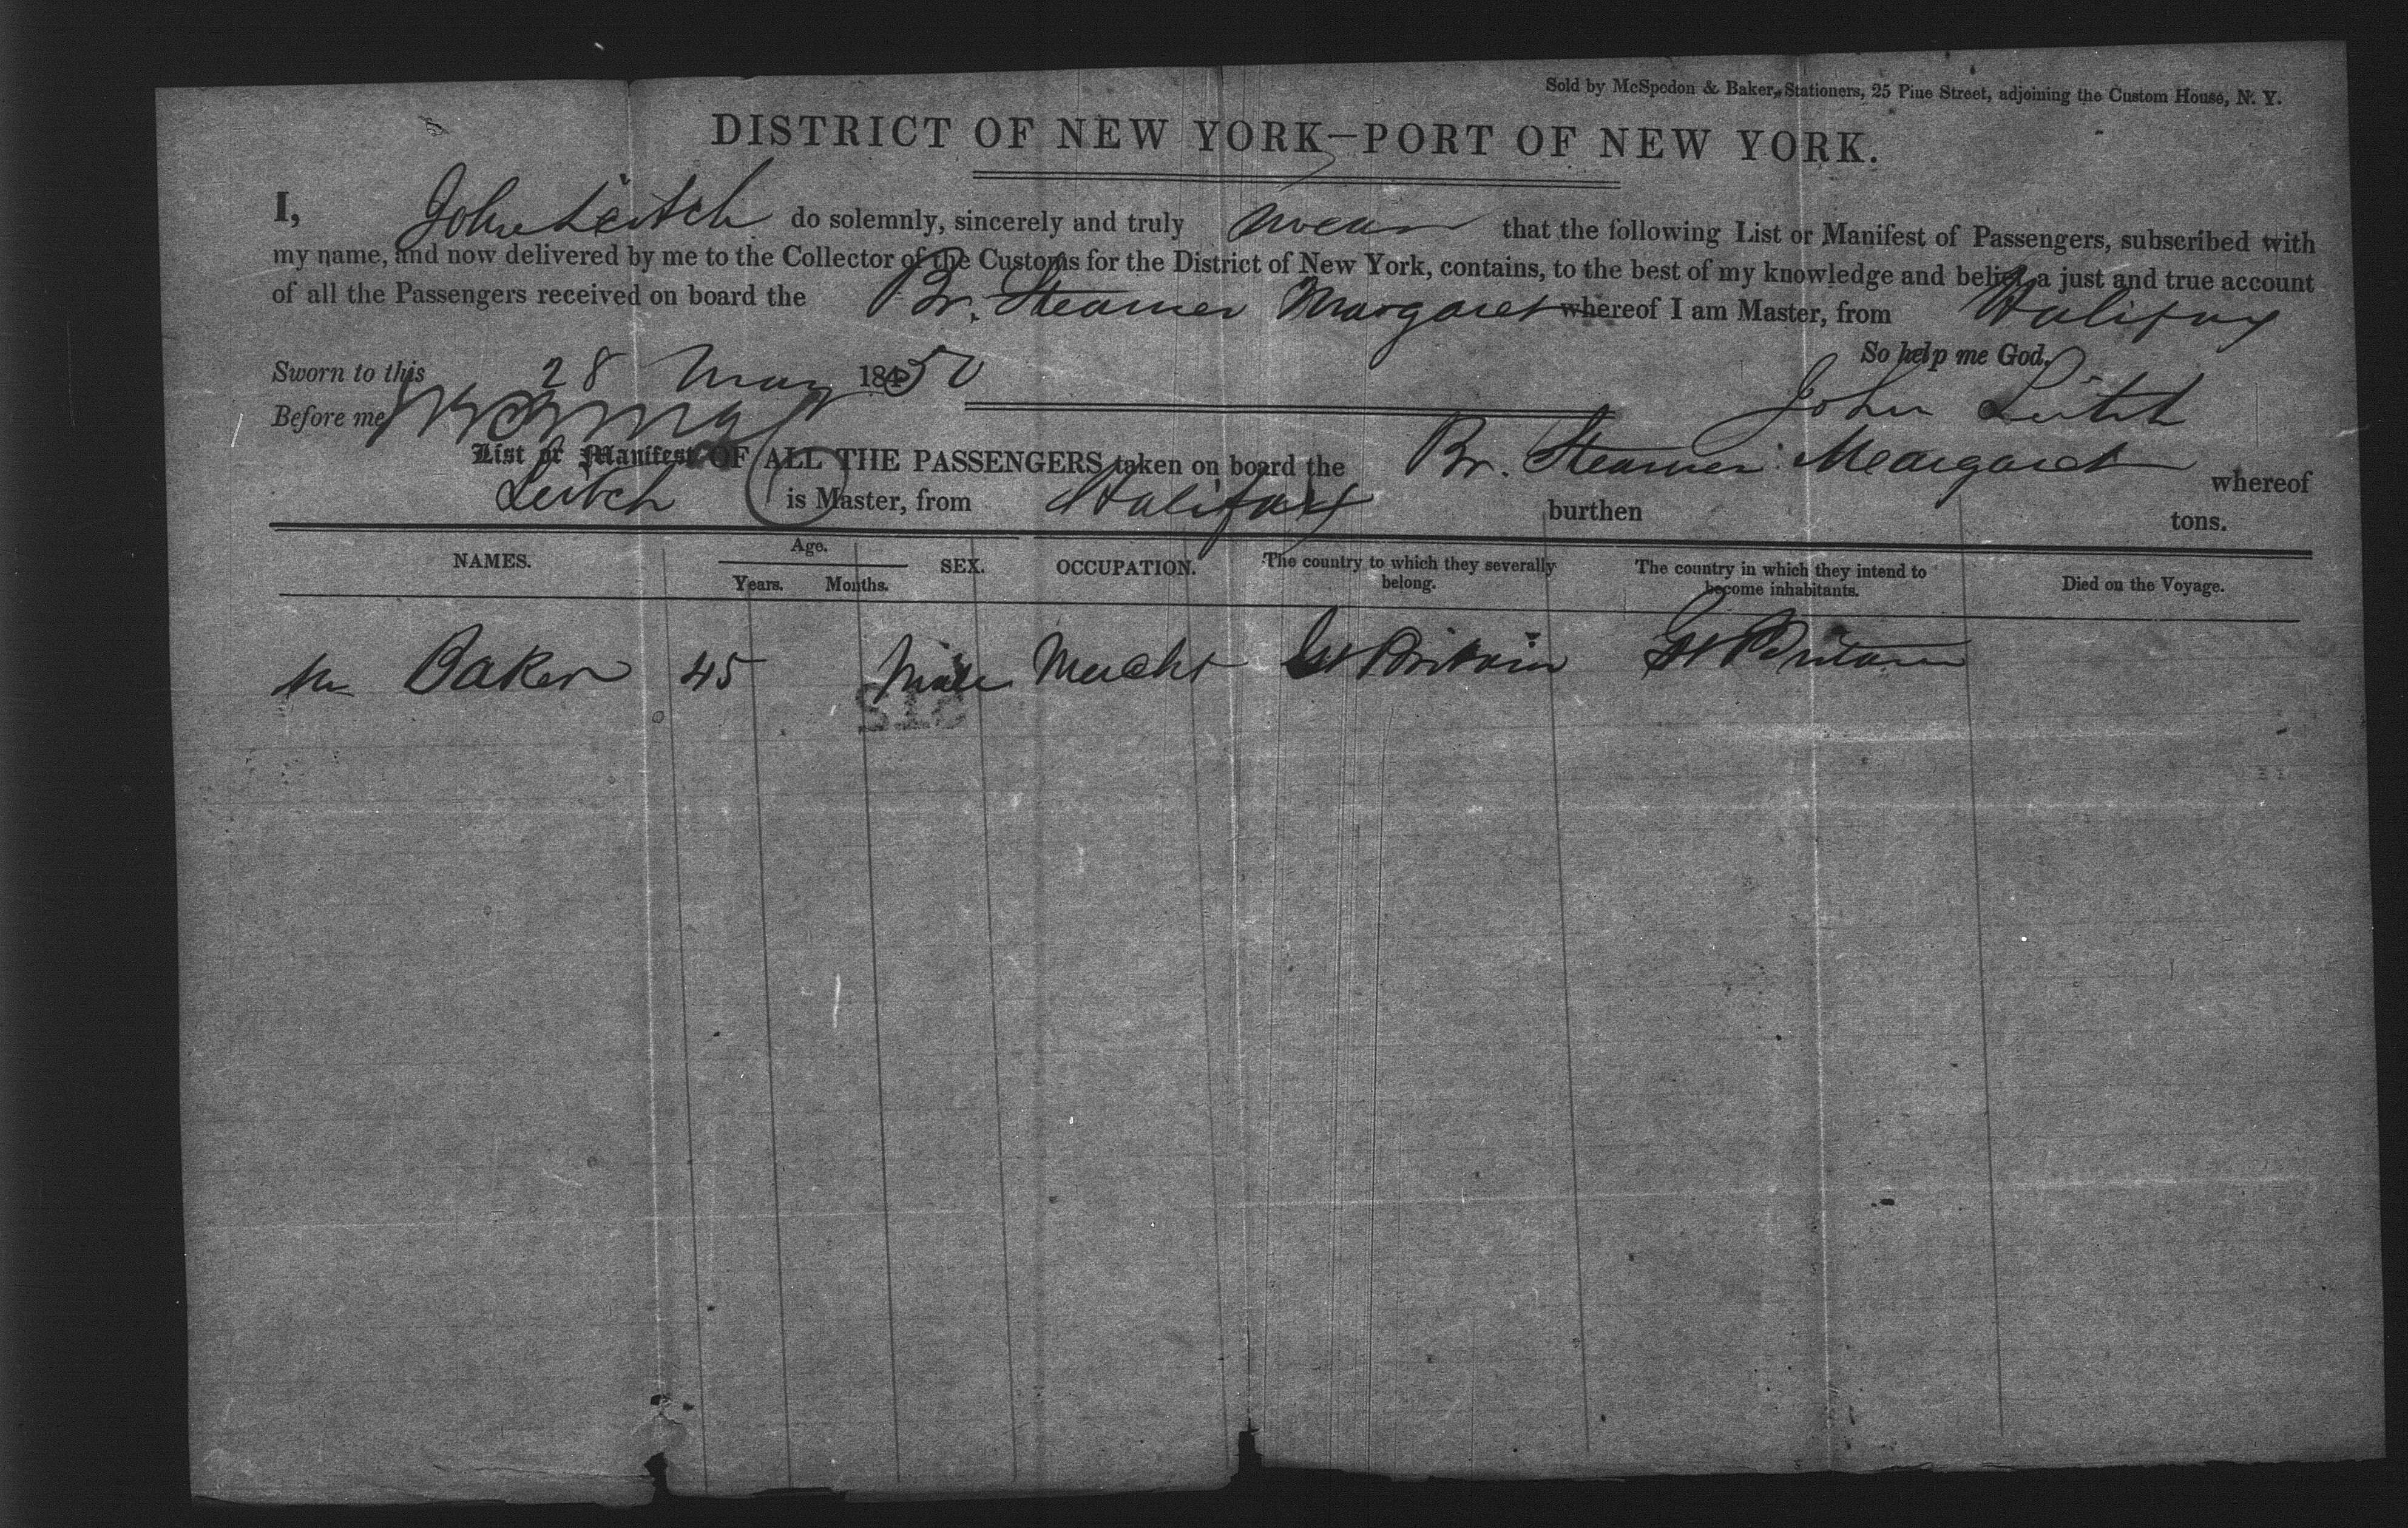 Sold by McSpedon & Baker, Stationers, 25 Pine Street, adjoining the Custom House, N. Y.
DISTRICT OF NEW YORK—PORT OF NEW YORK.
I, John Leitch do solemnly, sincerely and truly swear that the following List or Manifest of Passengers, subscribed with
my name, and now delivered by me to the Collector of the Customs for the District of New York, contains, to the best of my knowledge and belief, a just and true account
of all the Passengers received on board the Br. Steamer Margaret whereof I am Master, from Halifax
So help me God.
Sworn to this 28 May 18450
John Leitch
Before me
List or Manifest OF ALL THE PASSENGERS taken on board the Br. Steamer Margaret whereof
Leitch is Master, from Halifax burthen tons.
NAMES. Age. Years. Months. SEX. OCCUPATION. The country to which they severally belong. The country in which they intend to become inhabitants. Died on the Voyage.
Mr Baker 45 Male Mercht Gt Britain Gt Britain